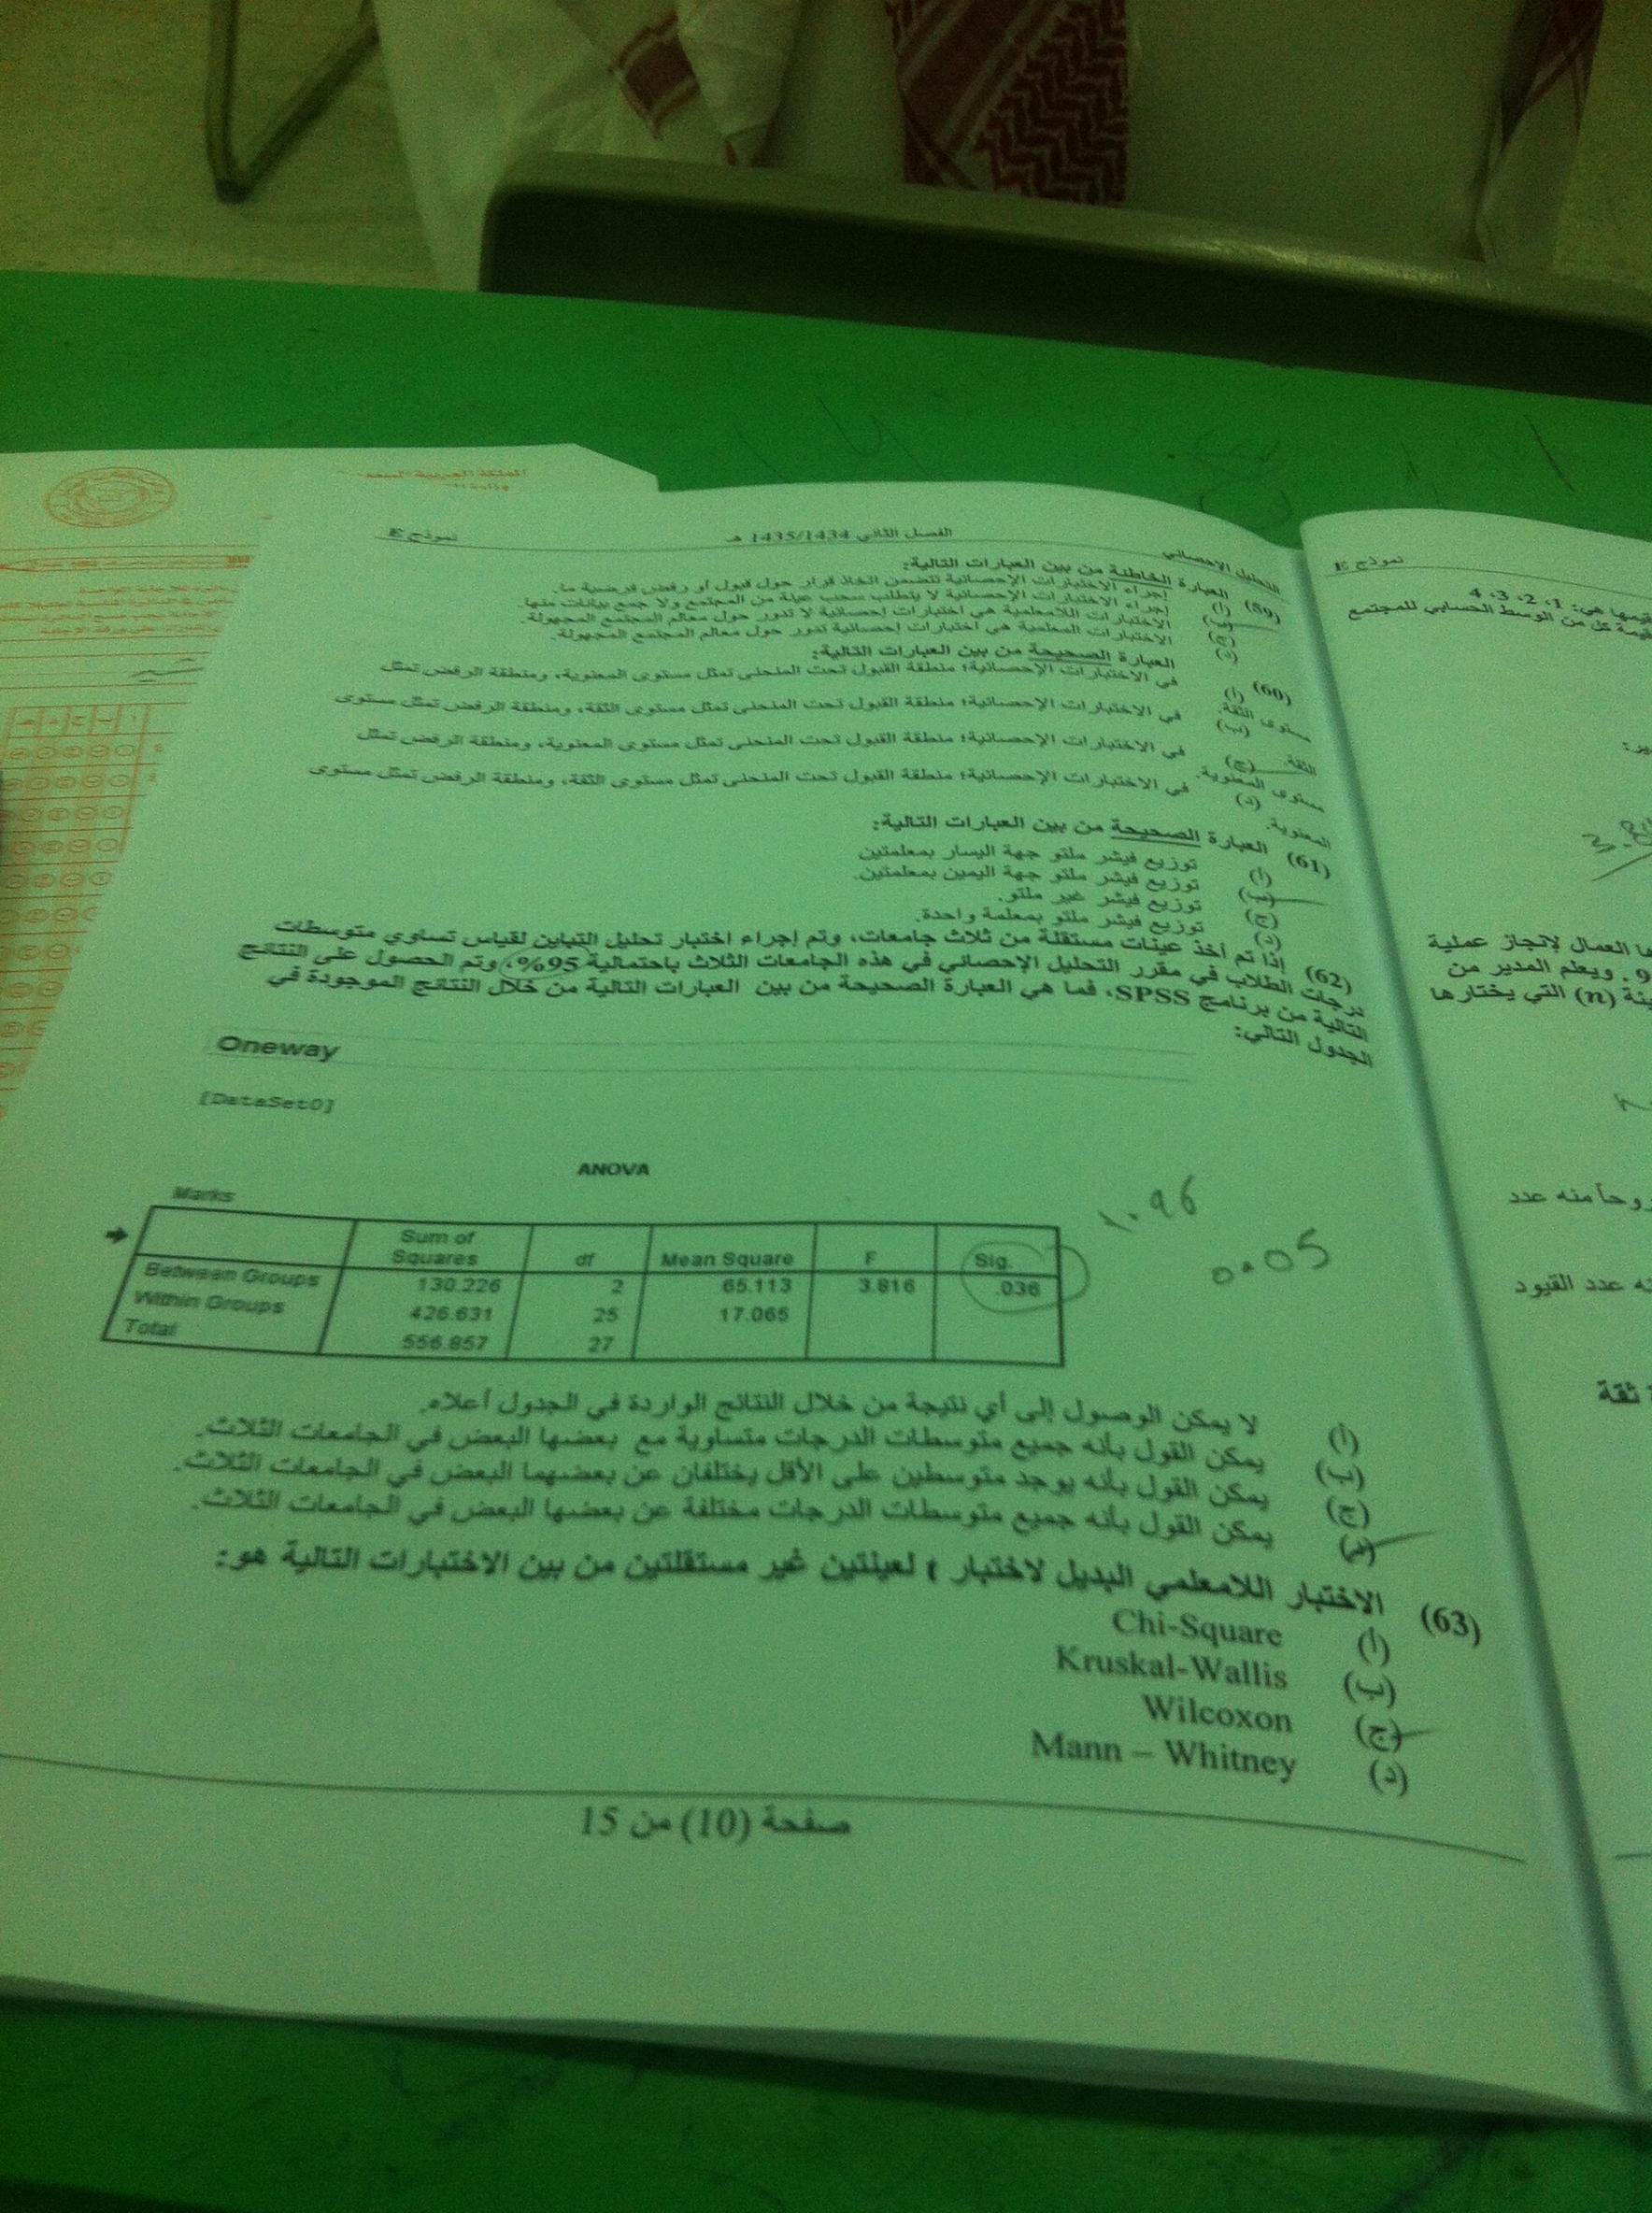 المملكة العربية السعود
التحليل الإحصائي الفصل الثاني 1435/1434 هـ نموذج E
(59) العبارة الخاطئة من بين العبارات التالية:
(أ) إجراء الاختبارات الإحصائية تتضمن اتخاذ قرار حول قبول أو رفض فرضية ما.
(ب) إجراء الاختبارات الإحصائية لا يتطلب سحب عينة من المجتمع ولا جمع بيانات منها.
(ج) الاختبارات اللامعلمية هي اختبارات إحصائية لا تدور حول معالم المجتمع المجهولة.
(د) الاختبارات المعلمية هي اختبارات إحصائية تدور حول معالم المجتمع المجهولة.
(60) العبارة الصحيحة من بين العبارات التالية:
(أ) في الاختبارات الإحصائية؛ منطقة القبول تحت المنحنى تمثل مستوى المعنوية، ومنطقة الرفض تمثل
مستوى الثقة.
(ب) في الاختبارات الإحصائية؛ منطقة القبول تحت المنحنى تمثل مستوى الثقة، ومنطقة الرفض تمثل مستوى
الثقة.
(ج) في الاختبارات الإحصائية؛ منطقة القبول تحت المنحنى تمثل مستوى المعنوية، ومنطقة الرفض تمثل
مستوى المعنوية.
(د) في الاختبارات الإحصائية؛ منطقة القبول تحت المنحنى تمثل مستوى الثقة، ومنطقة الرفض تمثل مستوى
المعنوية.
(61) العبارة الصحيحة من بين العبارات التالية:
(أ) توزيع فيشر ملتو جهة اليسار بمعلمتين
(ب) توزيع فيشر ملتو جهة اليمين بمعلمتين.
(ج) توزيع فيشر غير ملتو.
(د) توزيع فيشر ملتو بمعلمة واحدة.
(62) إذا تم أخذ عينات مستقلة من ثلاث جامعات، وتم إجراء اختبار تحليل التباين لقياس تساوي متوسطات
درجات الطلاب في مقرر التحليل الإحصائي في هذه الجامعات الثلاث باحتمالية 95%، وتم الحصول على النتائج
التالية من برنامج SPSS، فما هي العبارة الصحيحة من بين العبارات التالية من خلال النتائج الموجودة في
الجدول التالي:
Oneway
[DataSet0]
ANOVA
Marks
Sum of Squares df Mean Square F Sig.
Between Groups 130.226 2 65.113 3.816 .036
Within Groups 426.631 25 17.065
Total 556.857 27
1.96
0.05
(أ) لا يمكن الوصول إلى أي نتيجة من خلال النتائج الواردة في الجدول أعلاه.
(ب) يمكن القول بأنه جميع متوسطات الدرجات متساوية مع بعضها البعض في الجامعات الثلاث.
(ج) يمكن القول بأنه يوجد متوسطين على الأقل يختلفان عن بعضهما البعض في الجامعات الثلاث.
(د) يمكن القول بأنه جميع متوسطات الدرجات مختلفة عن بعضها البعض في الجامعات الثلاث.
(63) الاختبار اللامعلمي البديل لاختبار t لعينتين غير مستقلتين من بين الاختبارات التالية هو:
(أ) Chi-Square
(ب) Kruskal-Wallis
(ج) Wilcoxon
(د) Mann – Whitney
صفحة (10) من 15
نموذج E
هي: 1، 2، 3، 4
كل من الوسط الحسابي للمجتمع
العمال لإنجاز عملية
9. ويعلم المدير من
(n) التي يختارها
منه عدد
عدد القيود
ثقة